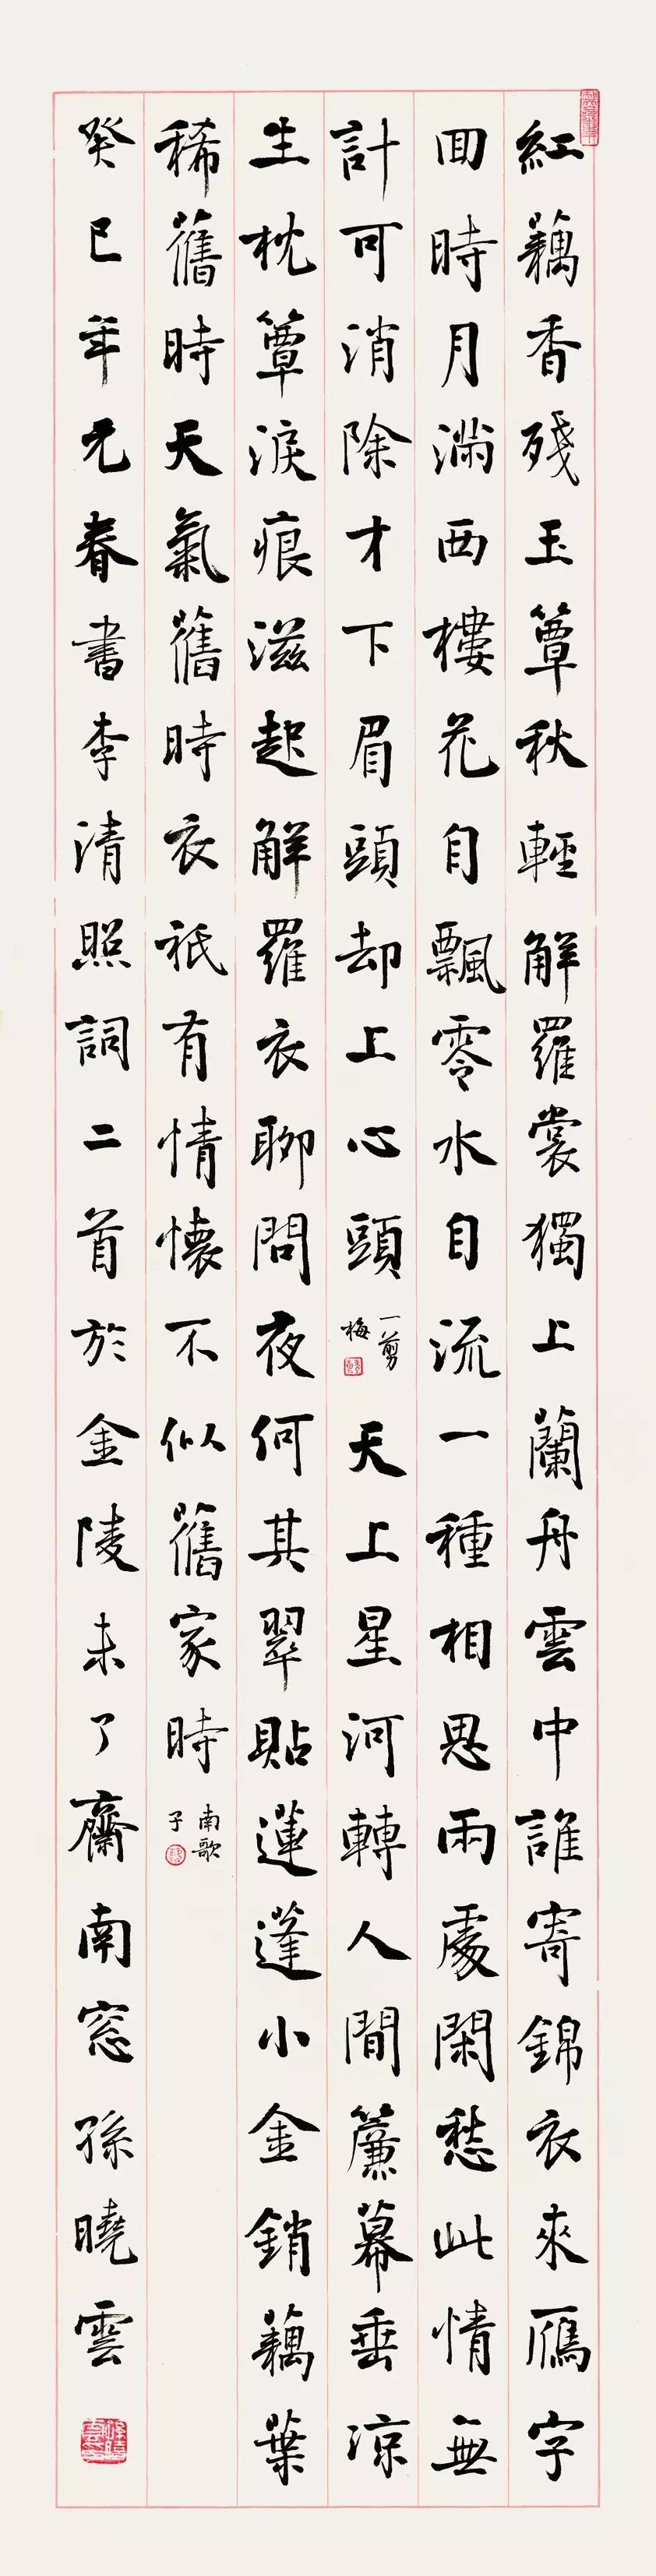 紅藕香殘玉簟秋輕解羅裳獨上蘭舟雲中誰寄錦衣來雁字
回時月滿西樓花自飄零水自流一種相思兩處閑愁此情無
計可消除才下眉頭却上心頭
一剪
梅
天上星河轉人間簾幕垂涼
生枕簟淚痕滋起解羅衣聊問夜何其翠貼蓮蓬小金銷藕葉
稀舊時天氣舊時衣祇有情懷不似舊家時
南歌
子
癸巳年元春書李清照詞二首於金陵未了齋南窓孫曉雲